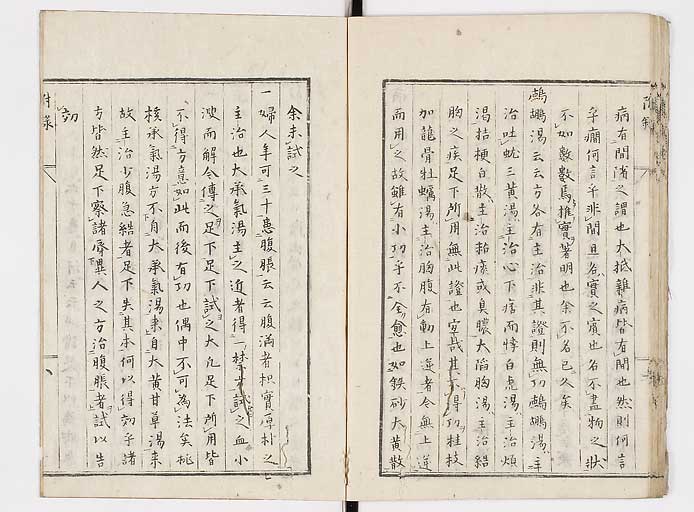 病有間隙之謂也大抵雖病皆有間也然則何言
乎癇何言乎非間且名實之賓也名不盡物之状
不如數數焉推實著明也余不名已久矣
鷓鴣湯云云方各有主治非其證則無功鷓鴣湯主
治吐蚘三黄湯主治心下痞而悸白虎湯主治煩
渇桔梗白散主治粘痰或臭膿大陷胸湯主治結
胸之疾足下所用無此證也宜哉其不得功桂枝
加龍骨牡蠣湯主治胸腹有動上逆者今無上逆
而用之故雖有小功乎不全愈也如鉄砂大黄散
余未試之
一婦人年可三十患腹脹云云腹滿者枳實厚朴之
主治也大承氣湯主之近者得一禁方試之血小
溲而解今傳之足下足下試之大凡足下所用皆
不得方意如此而後有功也偶中不可為法矣桃
核承氣湯方不自大承氣湯来自大黄甘草湯来
故主治少腹急結者足下失其本何以得効乎諸
方皆然足下察諸辱異人之方治腹脹者試以告
効
附錄